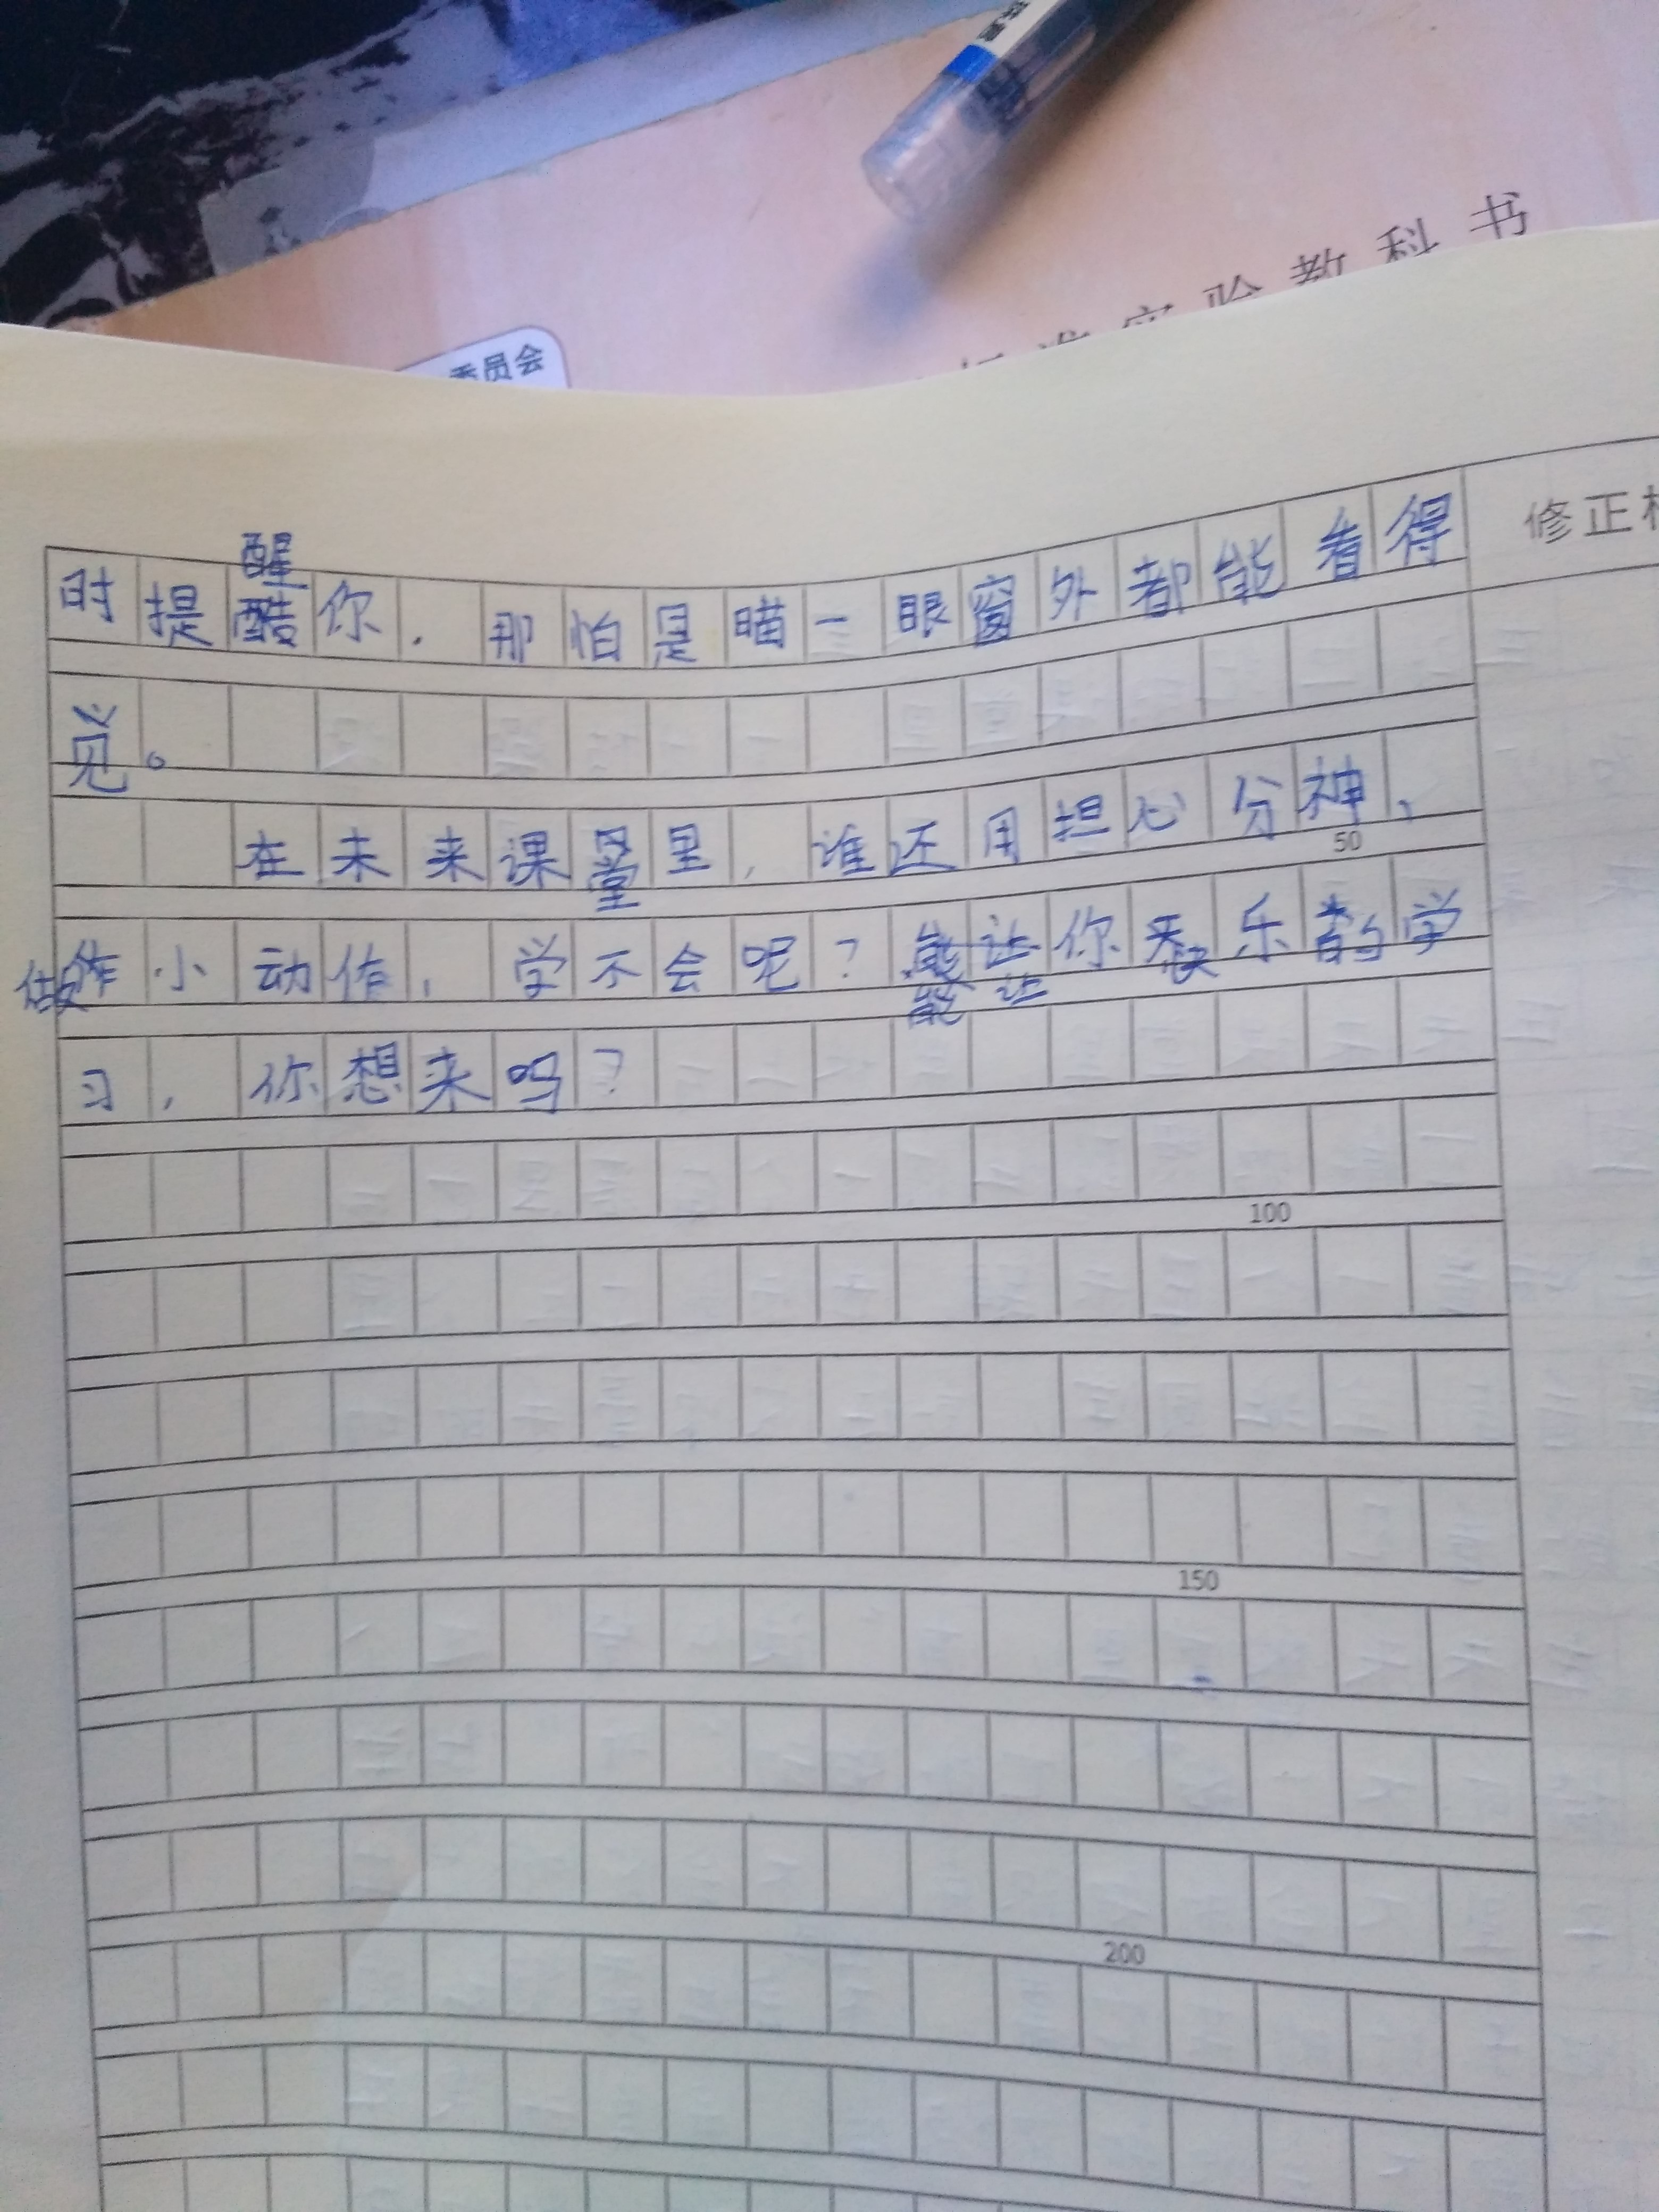 委员会
标准实验教科书
修正
醒
时提醒你，那怕是瞄一眼窗外都能看得
见。
在未来课堂里，谁还用担心分神、
做小动作，学不会呢？能让你快乐的学
能让
习，你想来吗？
50
100
150
200